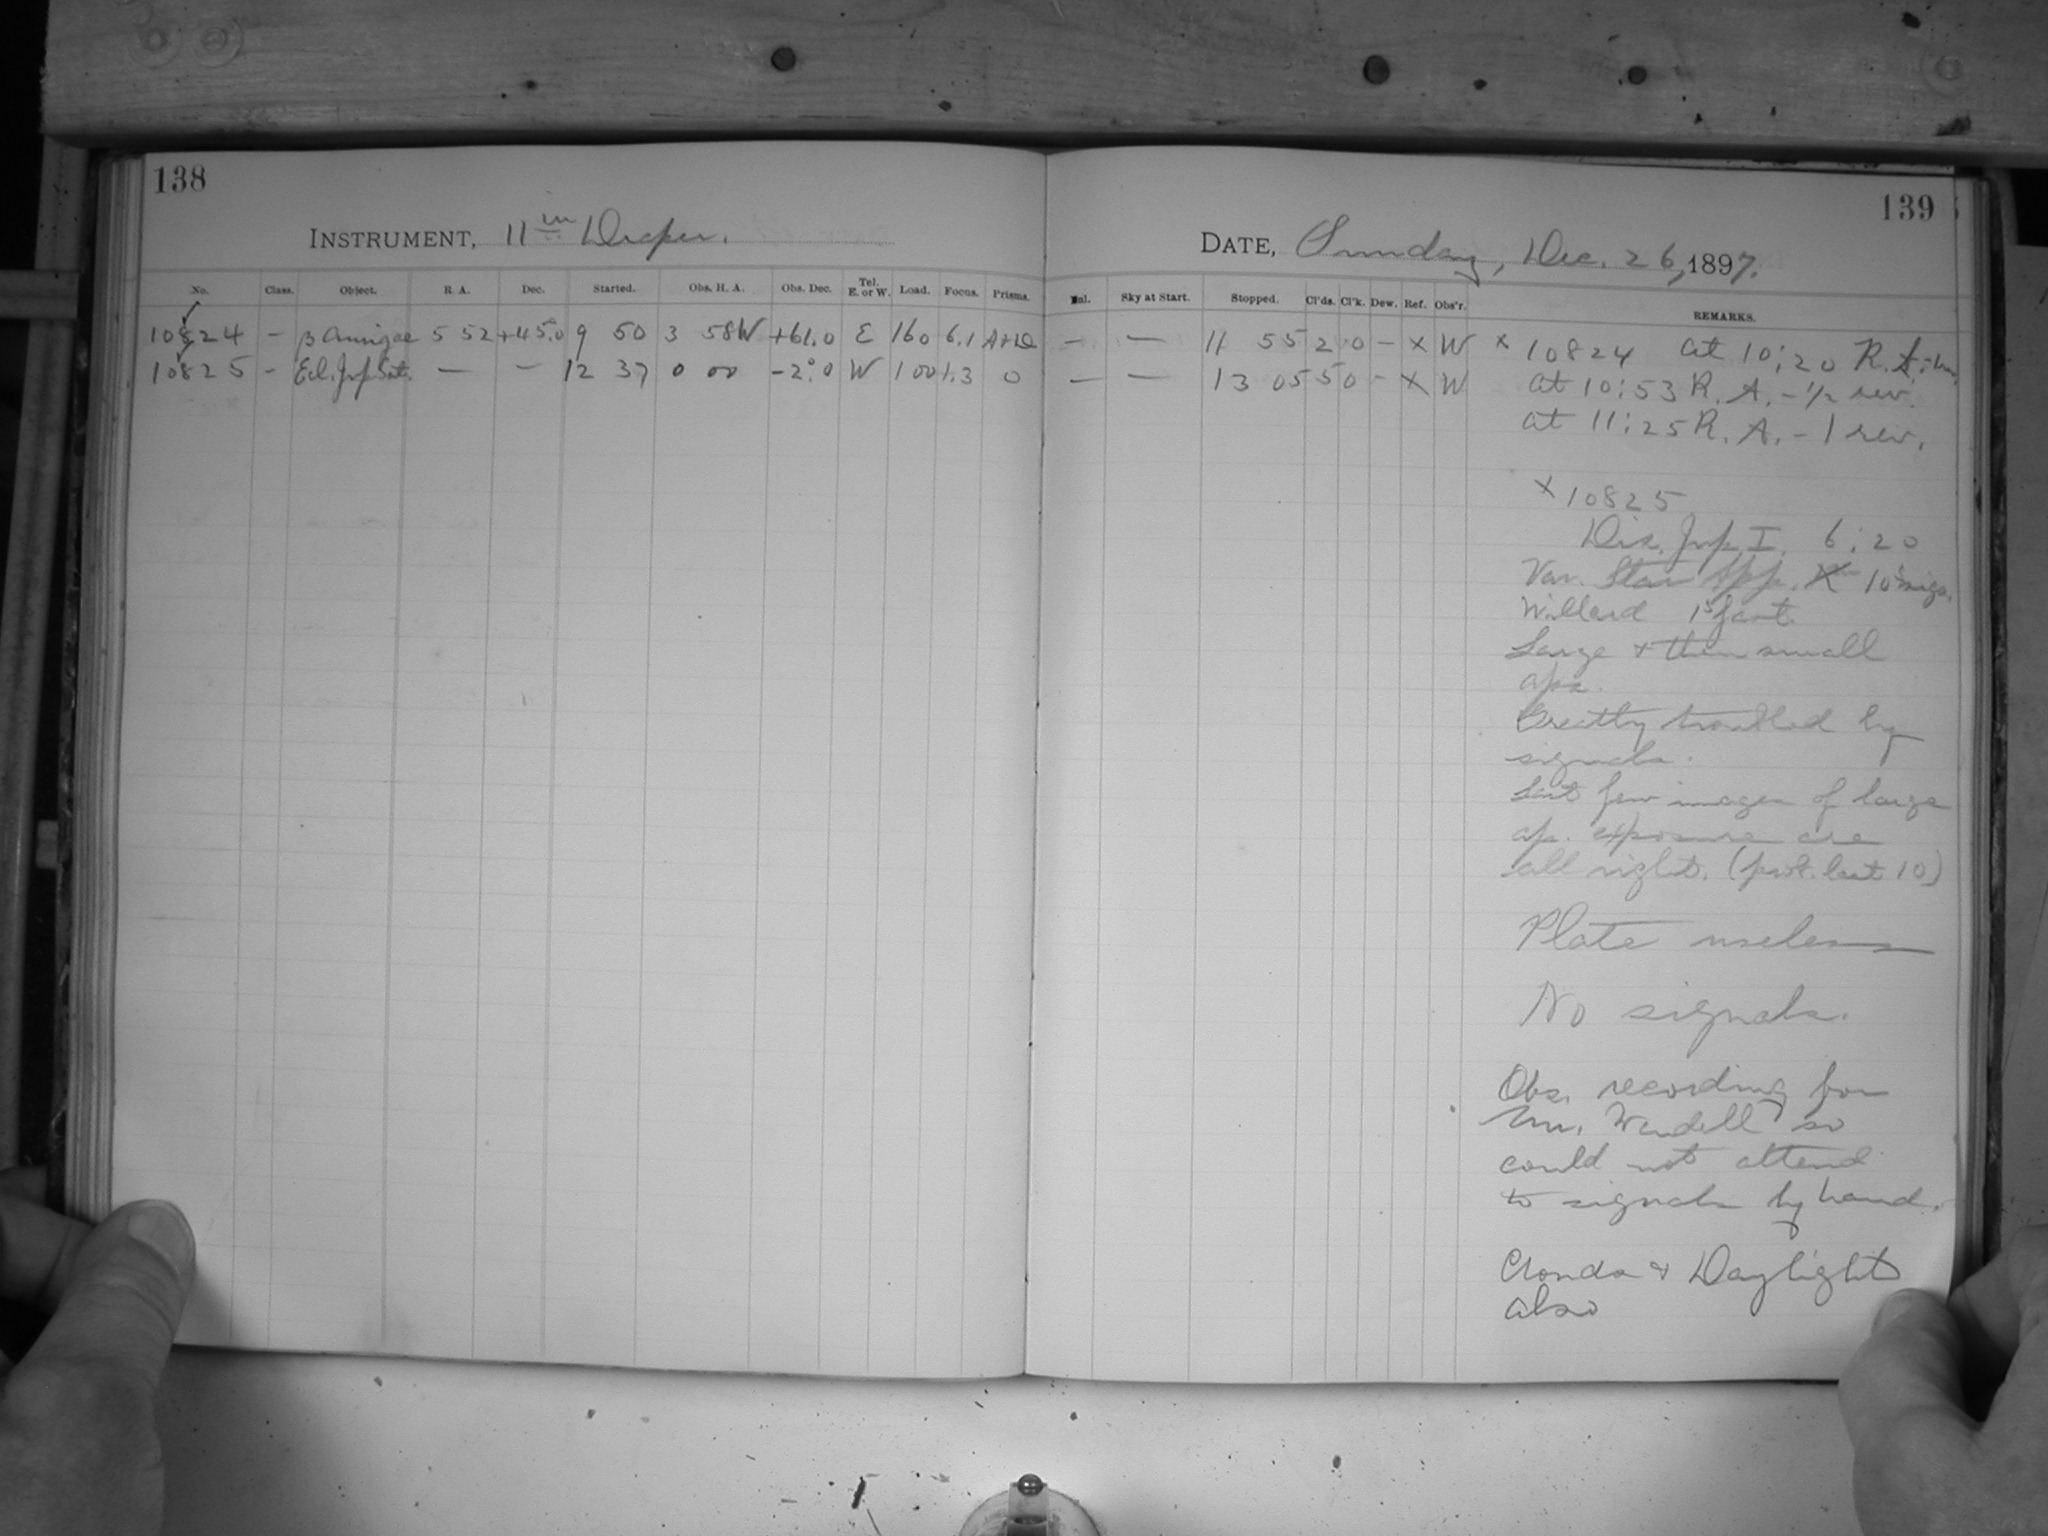 138
INSTRUMENT, 11 in Draper.
No. Class. Object. R. A. Dec. Started. Obs. H. A. Obs. Dec. Tel. E. or W. Load. Focus. Prisms.
10824 - β Aurigae 5 52 +45.0 9 50 3 58W +61.0 E 160 6.1
10825 - Ecl. Jup. Sat. — - 12 37 0 00 -2°.0 W 100 1.3 0
139
DATE, Sunday, Dec. 26, 1897.
Sky at Start. Stopped. Cl'ds. Cl'k. Dew. Ref. Obs'r. REMARKS.
— — 11 55 2 0 - x W x 10824 at 10:20 R. A.
— — 13 05 5 0 - x W at 10:53 R. A. - 1/2 rev.
at 11:25 R. A. - 1 rev.
x 10825
Dis. Jup. I. 6:20
Var. Star App. 10
Willard 1st part.
Large + then small
aps.
Greatly troubled by
signals.
Last few images of large
ap. exposure are
all right. (prob. last 10)
Plate useless
No signals.
Obs. recording for
Mr. Wendell so
could not attend
to signals by hand.
Clouds + Daylight
also